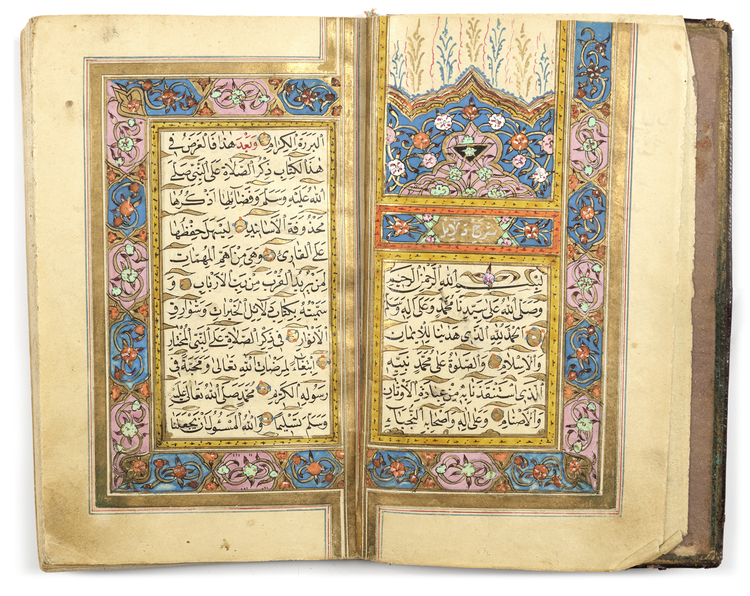 شرح دلايل
بسم الله الرحمن الرحيم
وصلى الله على سيدنا محمد وعلى اله وسلم
الحمد لله الذي هدينا للايمان
والاسلام والصلوة على محمد نبيه
الذي استنقذنا به من عبادة الاوثان
والاصنام وعلى اله واصحابه النجباء
البررة الكرام وبعد هذا فالغرض في
هذا الكتاب ذكر الصلاة على النبي صلى
الله عليه وسلم وفضائلها اذكرها
محذوفة الاسانيد ليسهل حفظها
على القارئ وهي من اهم المهمات
لمن يريد القرب من رب الارباب و
سميته بكتاب دلائل الخيرات وشوارق
الانوار في ذكر الصلاة على النبي المختار
ابتغاء لمرضات الله تعالى ومحبة في
رسوله الكريم محمد صلى الله تعالى عليه
وسلم تسليما والله المسئول ان يجعلنا